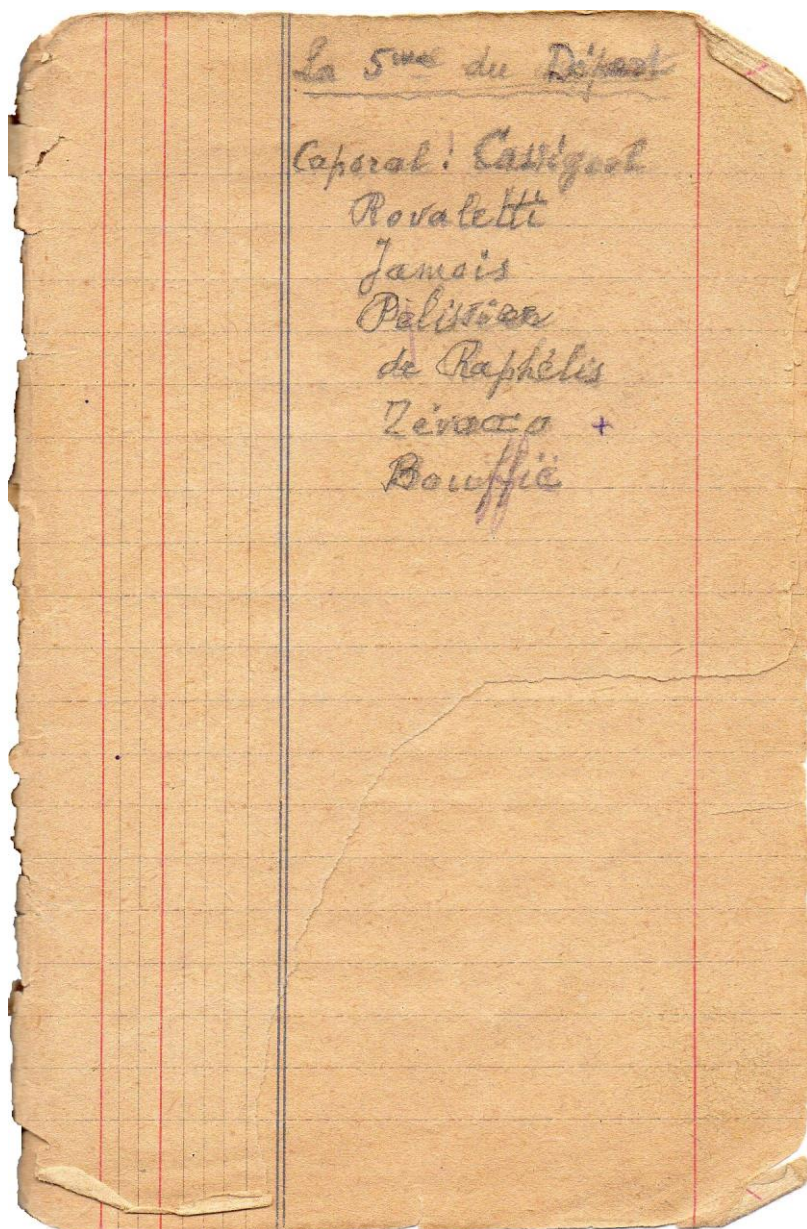 La 5me du Départ
Caporal : Cassignol
Rovaletti
Jamois
Pélissier
de Raphélis
Zévacco +
Bouffié